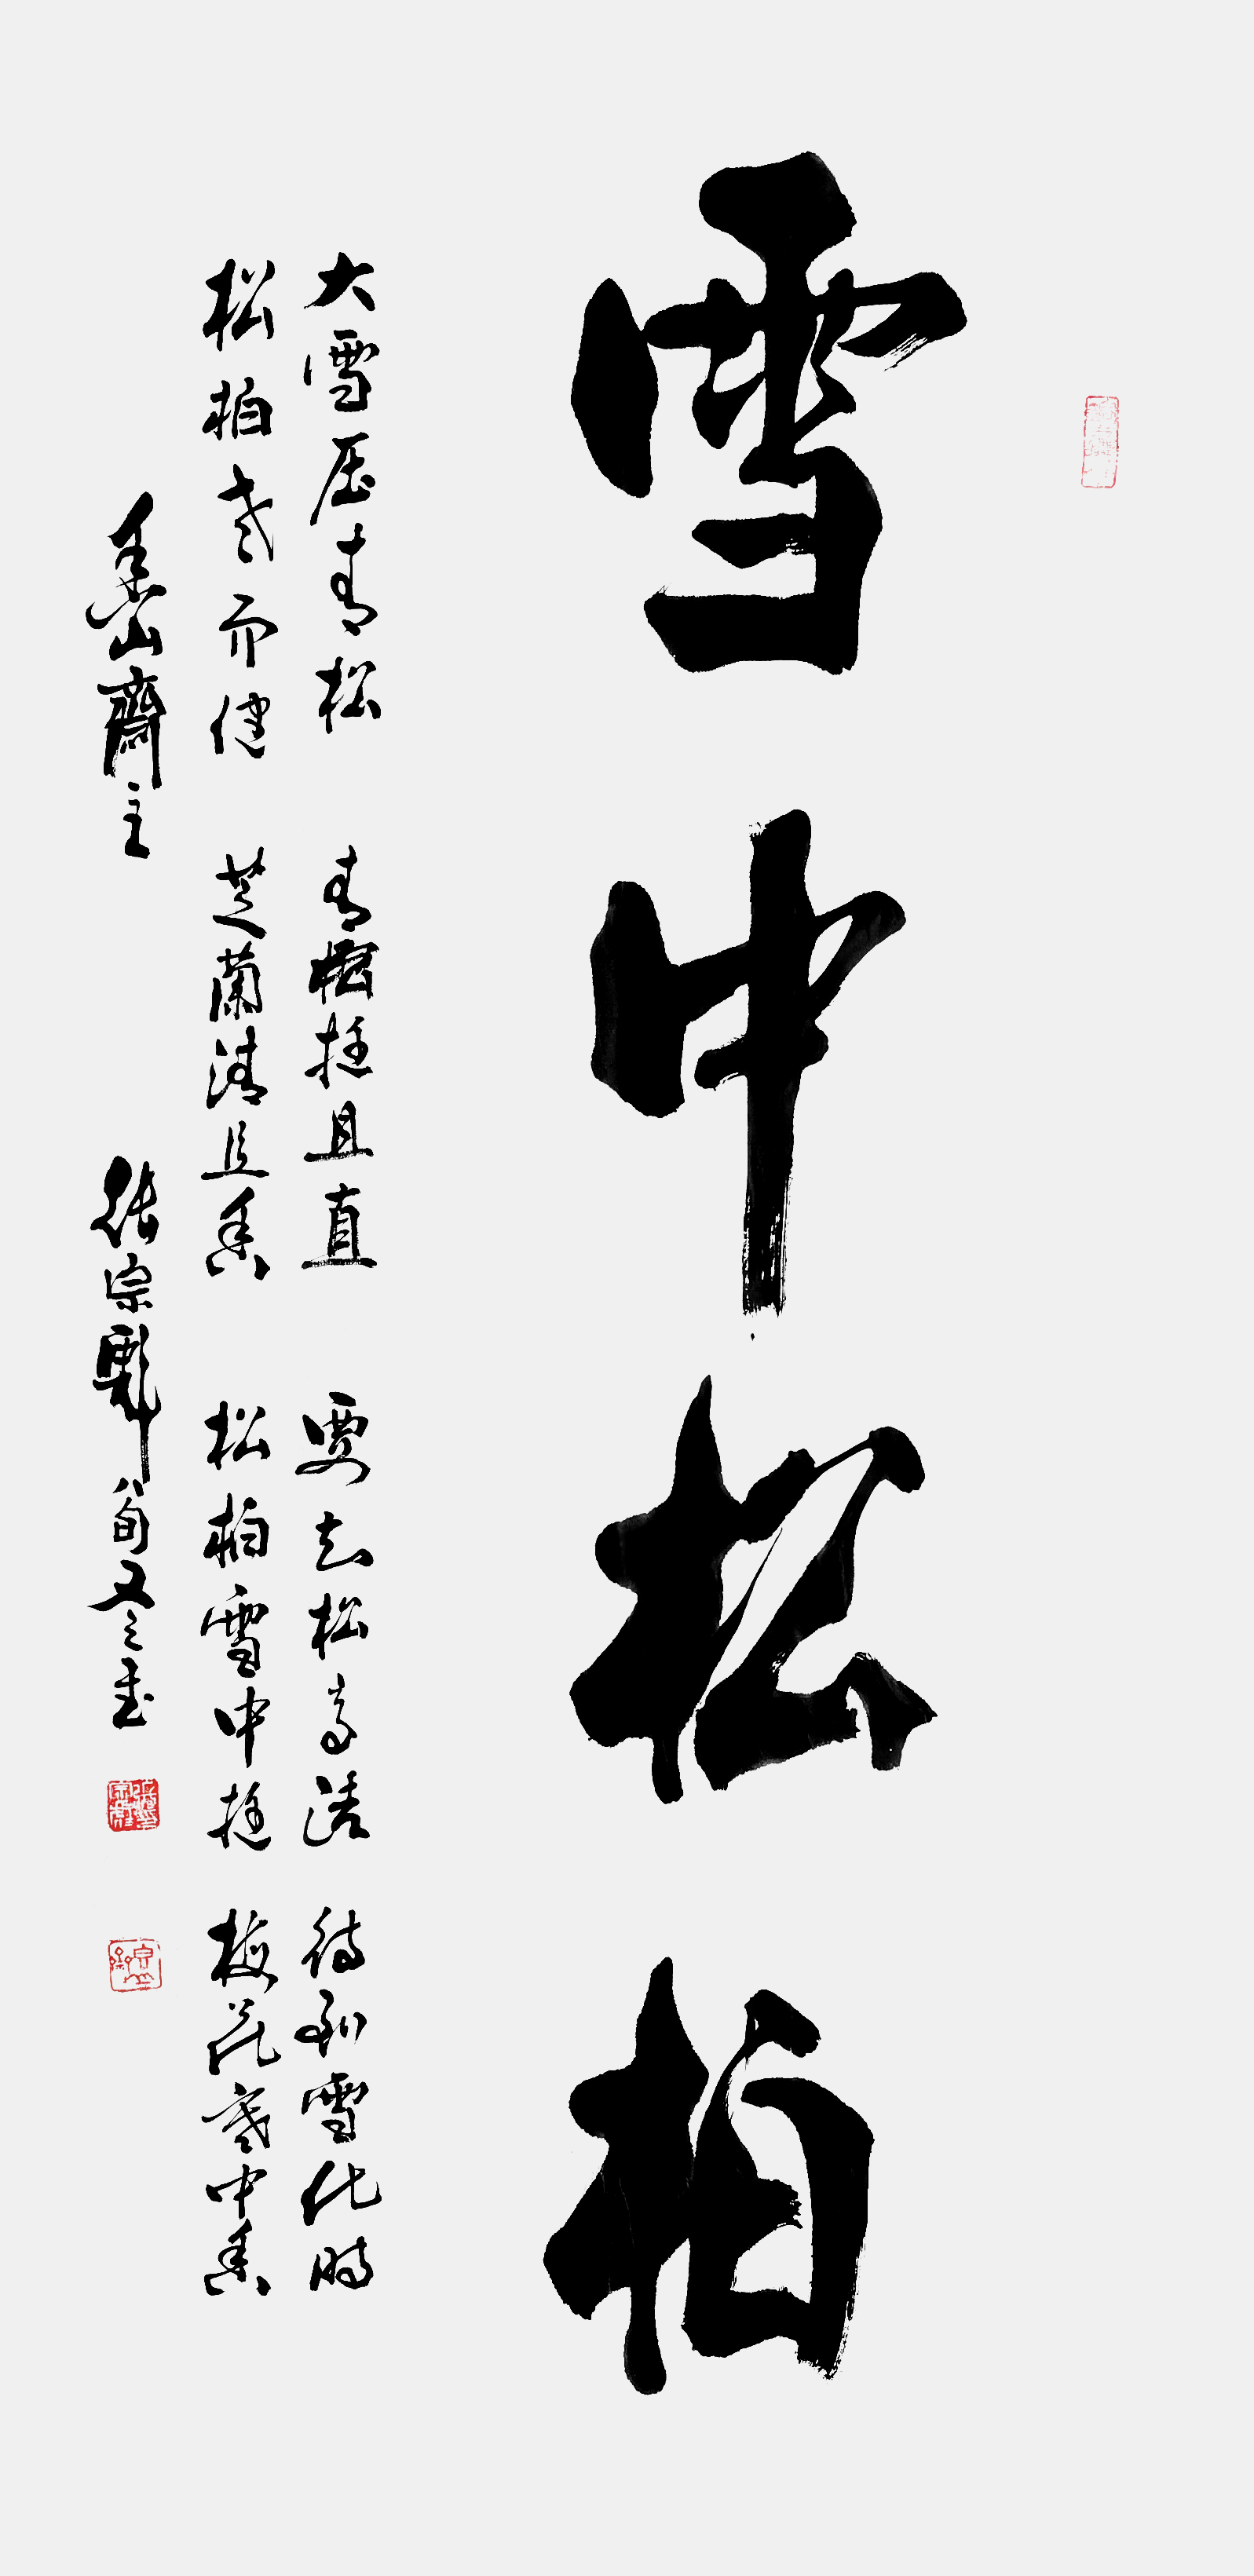 雪中松柏
大雪压青松 青松挺且直 要知松高洁 待到雪化时
松柏老而健 芝蘭清且香 松柏雪中挺 梅花寒中香
香山齋主 张宗彪 八旬又三书